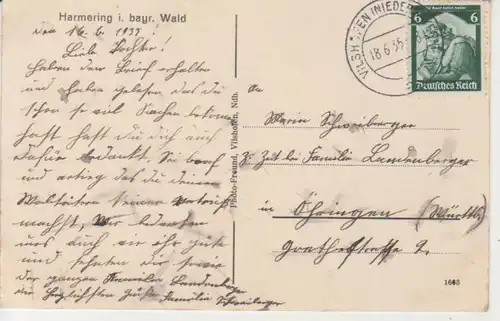 Harmering i. bayr. Wald
Den 16.6.1935
Liebe Tochter!
Haben den Brief erhalten
und haben gelesen das du
schon so viel Sachen bekom
hast hast du dich auch
dafür bedankt. Sei brav
und artig das du deinen
Wohltätern keinen
machst, Wir bedanken
uns auch sehr gute
und
der ganzen Familie Landenberger
die herzlichsten Grüße Familie Schreiberger
Photo-Freund, Vilshofen, Ndb.
VILSHOFEN (NIEDER
18.6.35
6 6
Deutsches Reich
An
Maria Schreiberger
Z. Zeit bei Familie Landenberger
in Öhringen (Württbg.)
2.
1683